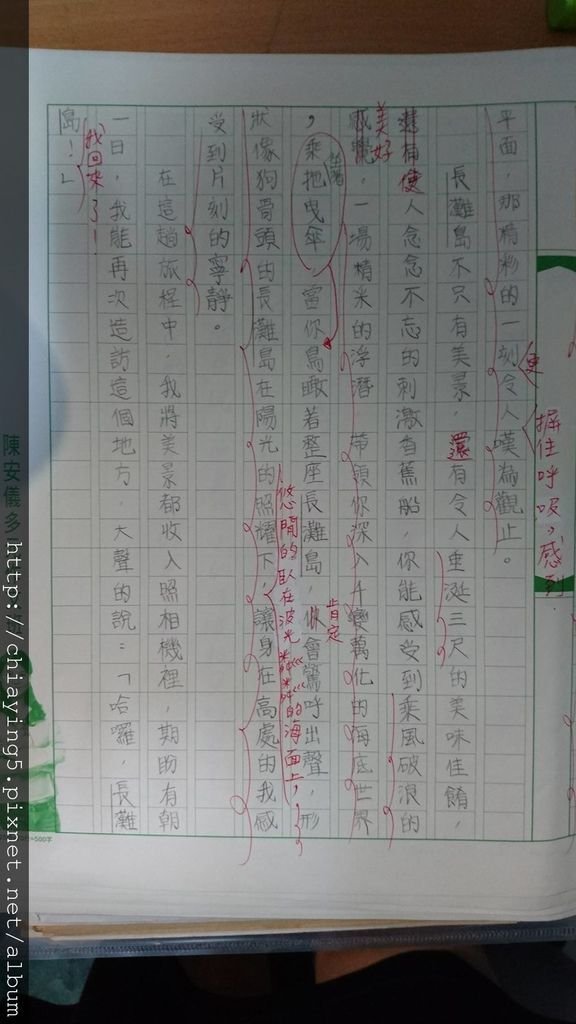 平面,那精彩的一刻令人嘆為觀止。
使
握住呼吸,感到
長灘島不只有美景,還有令人垂涎三尺的美味佳餚,
使人念念不忘的刺激香蕉船,你能感受到乘風破浪的
美好
感覺,一場精采的浮潛帶領你深入千變萬化的海底世界
,乘拖曳傘當你鳥瞰著整座長灘島,你會驚呼出聲,形
肯定
狀像狗骨頭的長灘島在陽光的照耀下,讓身在高處的我感
悠閒的臥在波光粼粼的海面上,
受到片刻的寧靜。
在這趟旅程中,我將美景都收入照相機裡,期盼有朝
一日,我能再次造訪這個地方,大聲的說:「哈囉,長灘
我回來了!
島!」
陳安儀多
500字
http://chiaying5.pixnet.net/album